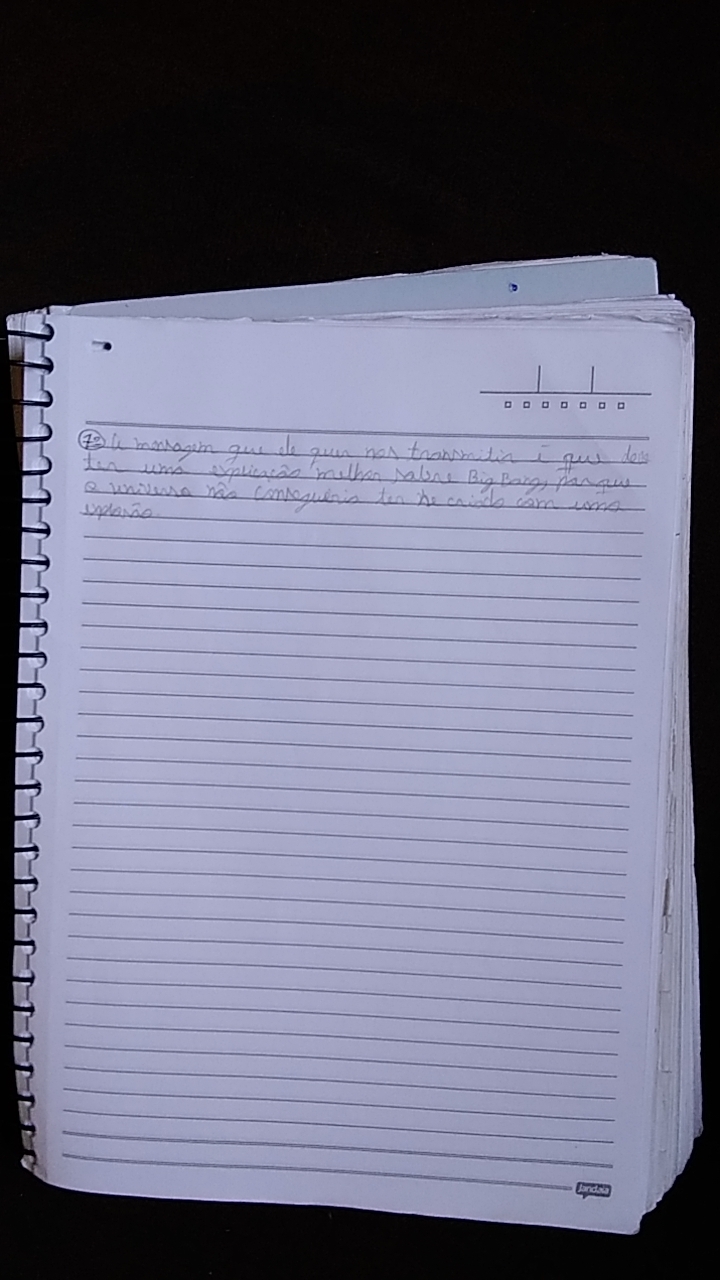 7º A mensagem que ele quer nos transmitir é que deve
ter uma explicação melhor sobre Big Bang, porque
o universo não conseguiria ter se criado com uma
explosão.
jandaia